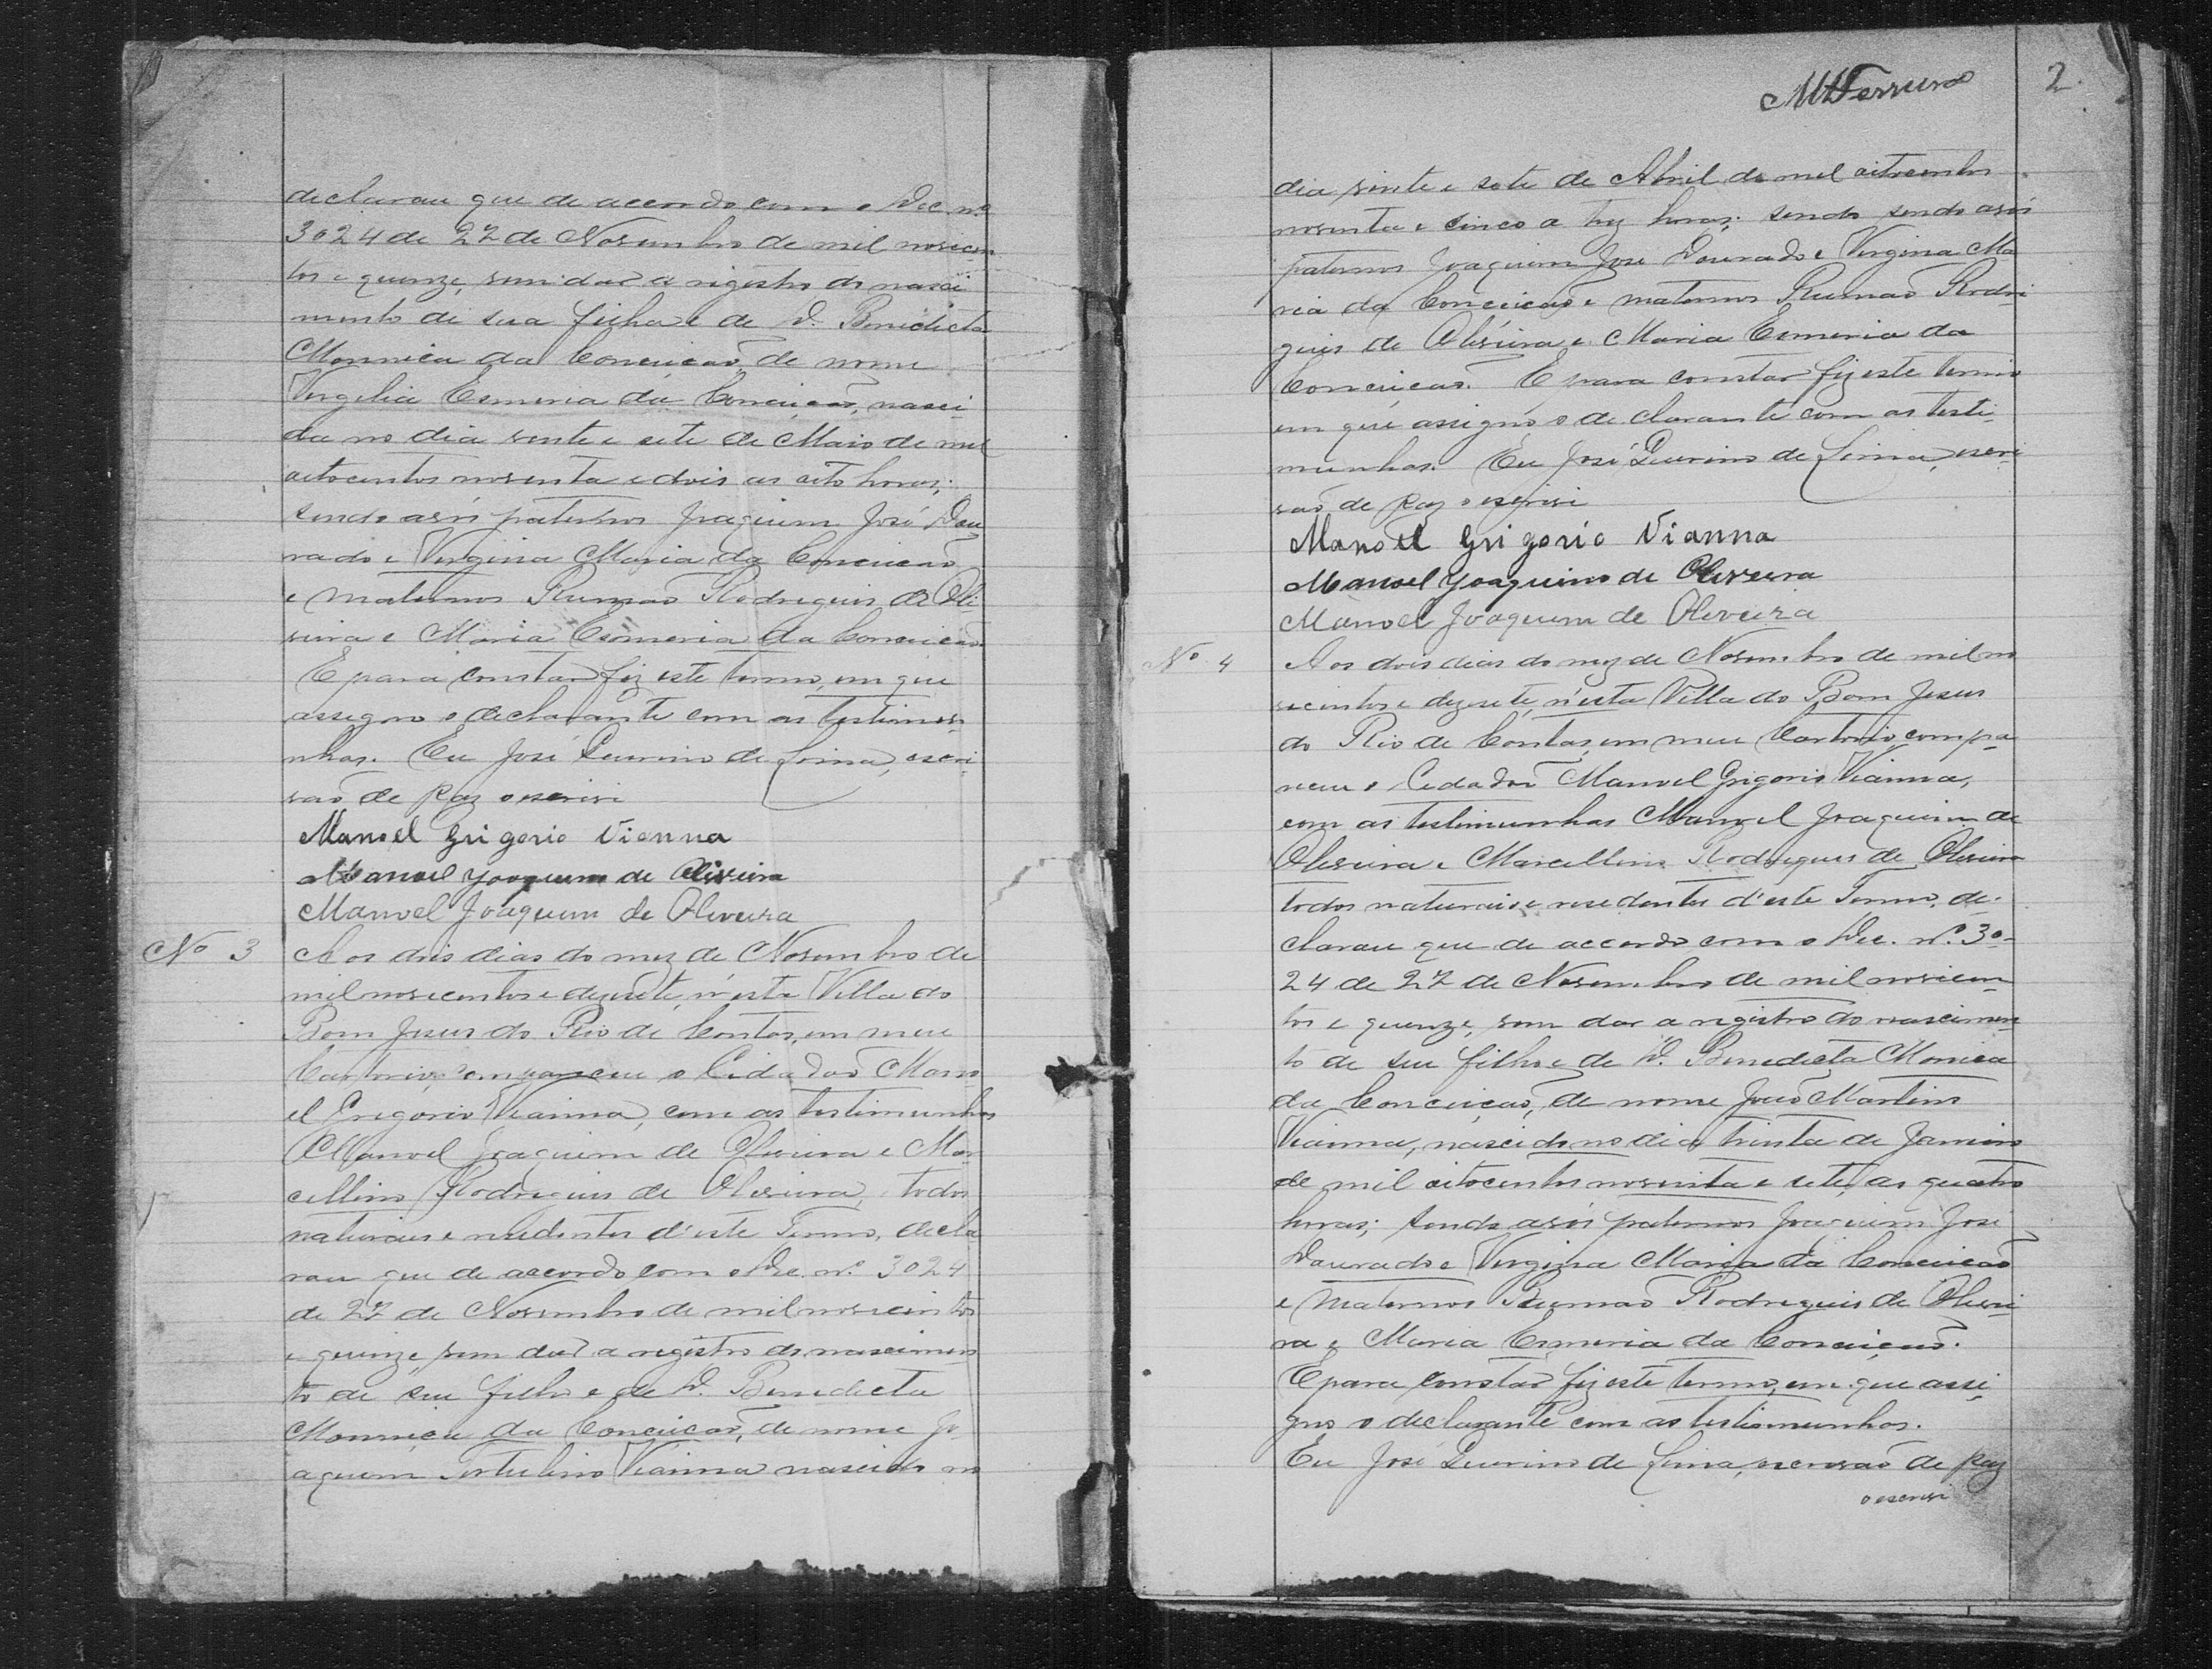 declarou que de accordo com o Dec. nº
3024 de 27 de Novembro de mil novicen
tos e quinze, vem dar a registro do nasci
mento de sua filha e de D. Benedicta
Monnica da Conceição, de nome
Virgilia Esmeria da Conceição, nasci-
da no dia vinte e sete de Maio de mil
oitocentos noventa e dois as oito horas;
sendo avós paternos Joaquim José Dou
rado e Virgina Maria da Conceicão
e maternos Rumão Rodrigues de Oli-
veira e Maria Esmeria da Conceicão.
E para constar fiz este termo, em que
assigno o declarante com as testimu-
nhas. Eu José Leurino de Lima, escri-
vão de paz o escrivi
Manoel Grigorio Vianna
Manoel Joaquim de Oliveira
Manoel Joaquim de Oliveira
Nº 3
Aos dois dias do mez de Novembro de
mil novecentos e dezesete, n'esta Villa do
Bom Jesus do Rio de Contas, em meu
Cartorio, compareceu o Cidadão Mano
el Gregorio Vianna, com as testimunhas
Manoel Joaquim de Oliveira e Mar
cellino Rodrigues de Oliveira, todos
naturais e residentes d'este Termo, decla
rou que de accordo com o Dec. nº 3024
de 27 de Novembro de mil novecentos
e quinze, vem dar a registro do nascimen
to de seu filho e de D. Benedicta
Monnica da Conceicão, de nome Jo
aquim Vianna nascido no
MFerreira
2
dia vinte e sete de Abril de mil oitocentos
noventa e cinco a trez horas; sendo sendo avós
paternos Joaquim José Dourado e Virgina Ma
ria da Conceicão e maternos Rumão Rodri
gues de Oliveira e Maria Esmeria da
Conceicao. E para constar fiz este termo
em que assigno o declarante com as testi-
munhas. Eu José Leurino de Lima, escri
vão de paz o escrivi
Manoel Grigorio Vianna
Manoel Joaquim de Oliveira
Manoel Joaquim de Oliveira
Nº 4
Aos dois dias do mez de Novembro de mil no
vecentos e dezesete, n'esta Villa do Bom Jesus
do Rio de Contas, em meu Cartorio, compa
receu o Cidadão Manoel Grigorio Vianna,
com as testimunhas Manoel Joaquim de
Oliveira e Marcellino Rodrigues de Oliveira
todos naturais e residentes d'este Termo, de-
clarou que de accordo com o Dec. nº 30-
24 de 27 de Novembro de mil novicen
tos e quinze, vem dar a registro do nascimen
to de seu filho e de D. Benedicta Monica
da Conceicão, de nome João Martins
Vianna, nascido no dia trinta de Janeiro
de mil oitocentos noventa e sete, as quatro
horas; sendo avós paternos Joaquim José
Dourado e Virgina Maria da Conceicão
e maternos Rumão Rodrigues de Olivei
ra e Maria Esmeria da Conceicão.
E para constar fiz este termo, em que assi
gno o declarante com as testimunhas.
Eu José Leurino de Lima, escrivão de paz
o escrivi